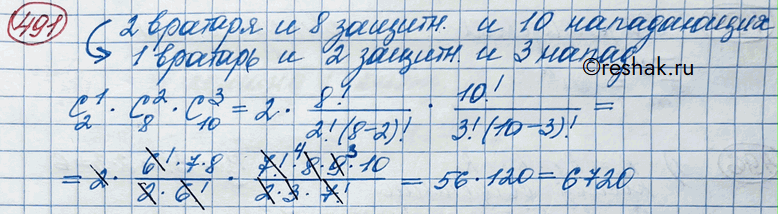 491
2 вратаря и 8 защитн. и 10 нападающих
1 вратарь и 2 защитн. и 3 напад
©reshak.ru
C₂¹ · C₈² · C₁₀³ = 2 · 8!/(2!(8-2)!) · 10!/(3!(10-3)!) =
= 2 · (6! · 7 · 8)/(2 · 6!) · (7! · 8 · 9 · 10)/(2 · 3 · 7!) = 56 · 120 = 6720